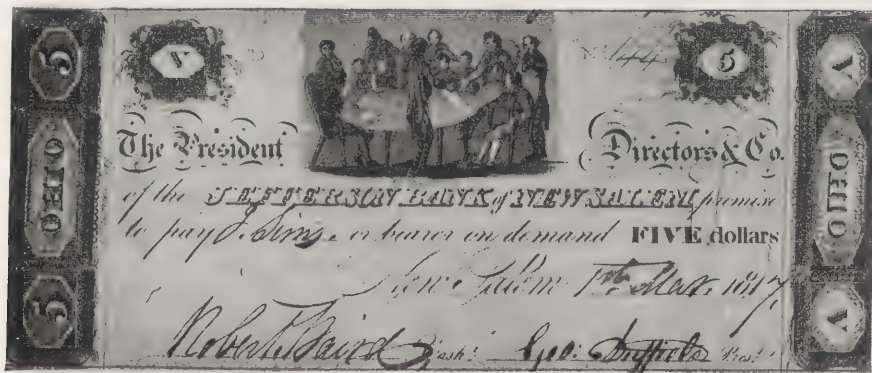 5 V No. 144 5 V
The President Directors & Co.
OHIO of the JEFFERSON BANK of NEW SALEM promise OHIO
to pay J. Sims or bearer on demand FIVE dollars
New Salem 1st Mar. 1817
5 Robert Baird Cash.r Geo: Duffield Pres.t V